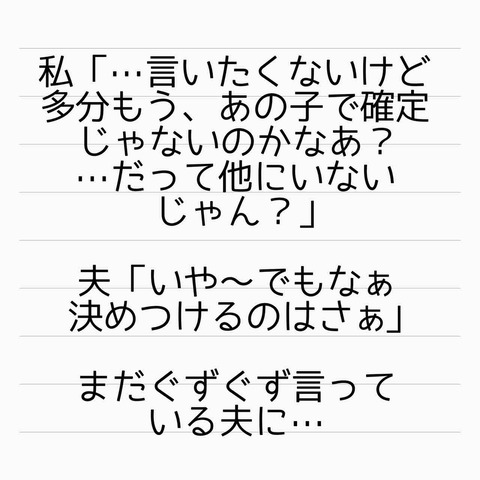 私「…言いたくないけど
多分もう、あの子で確定
じゃないのかなあ？
…だって他にいない
じゃん？」
夫「いや～でもなぁ
決めつけるのはさぁ」
まだぐずぐず言って
いる夫に…